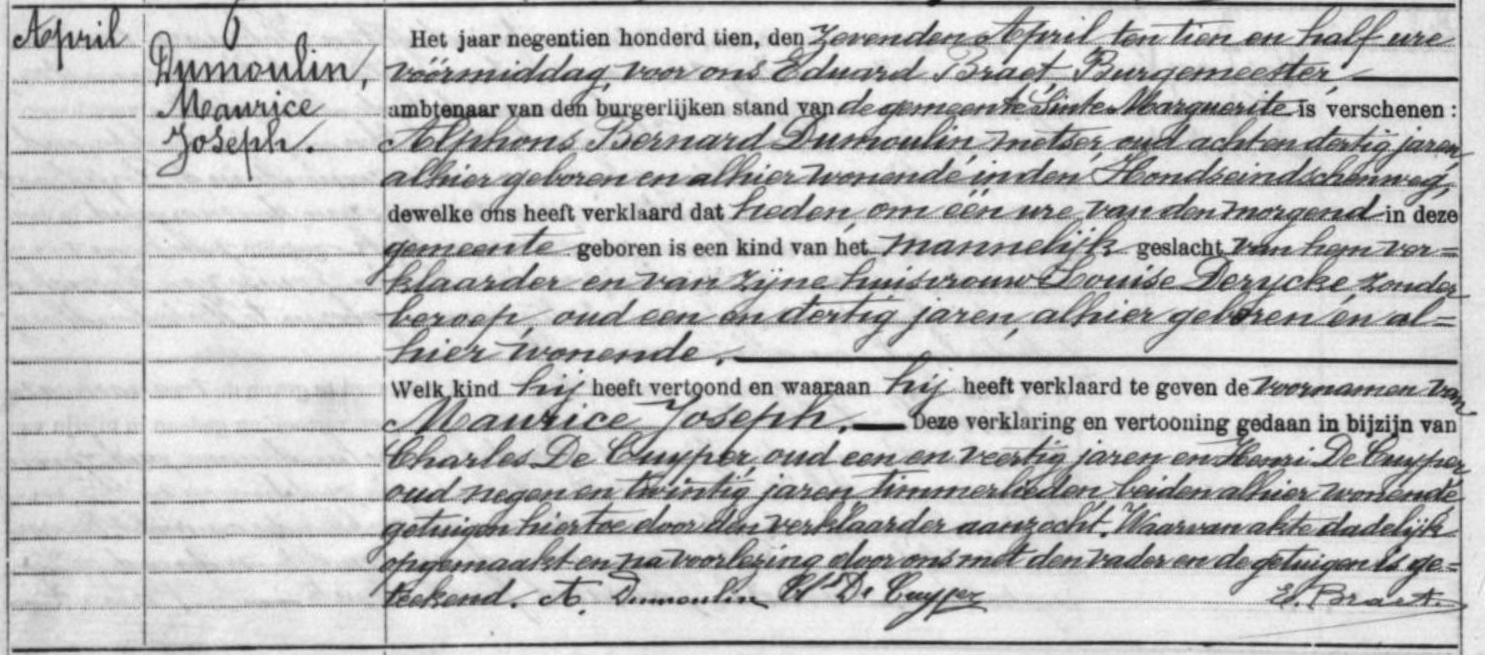 April
Dumoulin,
Maurice
Joseph.
Het jaar negentien honderd tien, den Zevenden April ten tien en half ure
vöormiddag, voor ons Eduard Braet, Burgemeester
ambtenaar van den burgerlijken stand van de gemeente Sinte Marguerite is verschenen :
Alphons Bernard Dumoulin metser, oud acht en dertig jaren
alhier geboren en alhier wonende in den Hondseindschenweg,
dewelke ons heeft verklaard dat heden, om één ure, van den morgend in deze
gemeente geboren is een kind van het mannelijk geslacht van hem ver=
klaarder en van zijne huisvrouw Louise Derycke zonder
beroep, oud een en dertig jaren, alhier geboren en al=
hier wonende.
Welk kind hij heeft vertoond en waaraan hij heeft verklaard te geven de voornamen van
Maurice Joseph. Deze verklaring en vertooning gedaan in bijzijn van
Charles De Cuyper, oud een en veertig jaren en Henri De Cuyper
oud negen en twintig jaren, timmerlieden, beiden alhier wonende
getuigen hiertoe door den verklaarder aanzocht. Waarvan akte dadelijk
opgemaakt en na voorlezing door ons met den vader en de getuigen is ge=
teekend. A. Dumoulin Cls De Cuyper E. Braet.